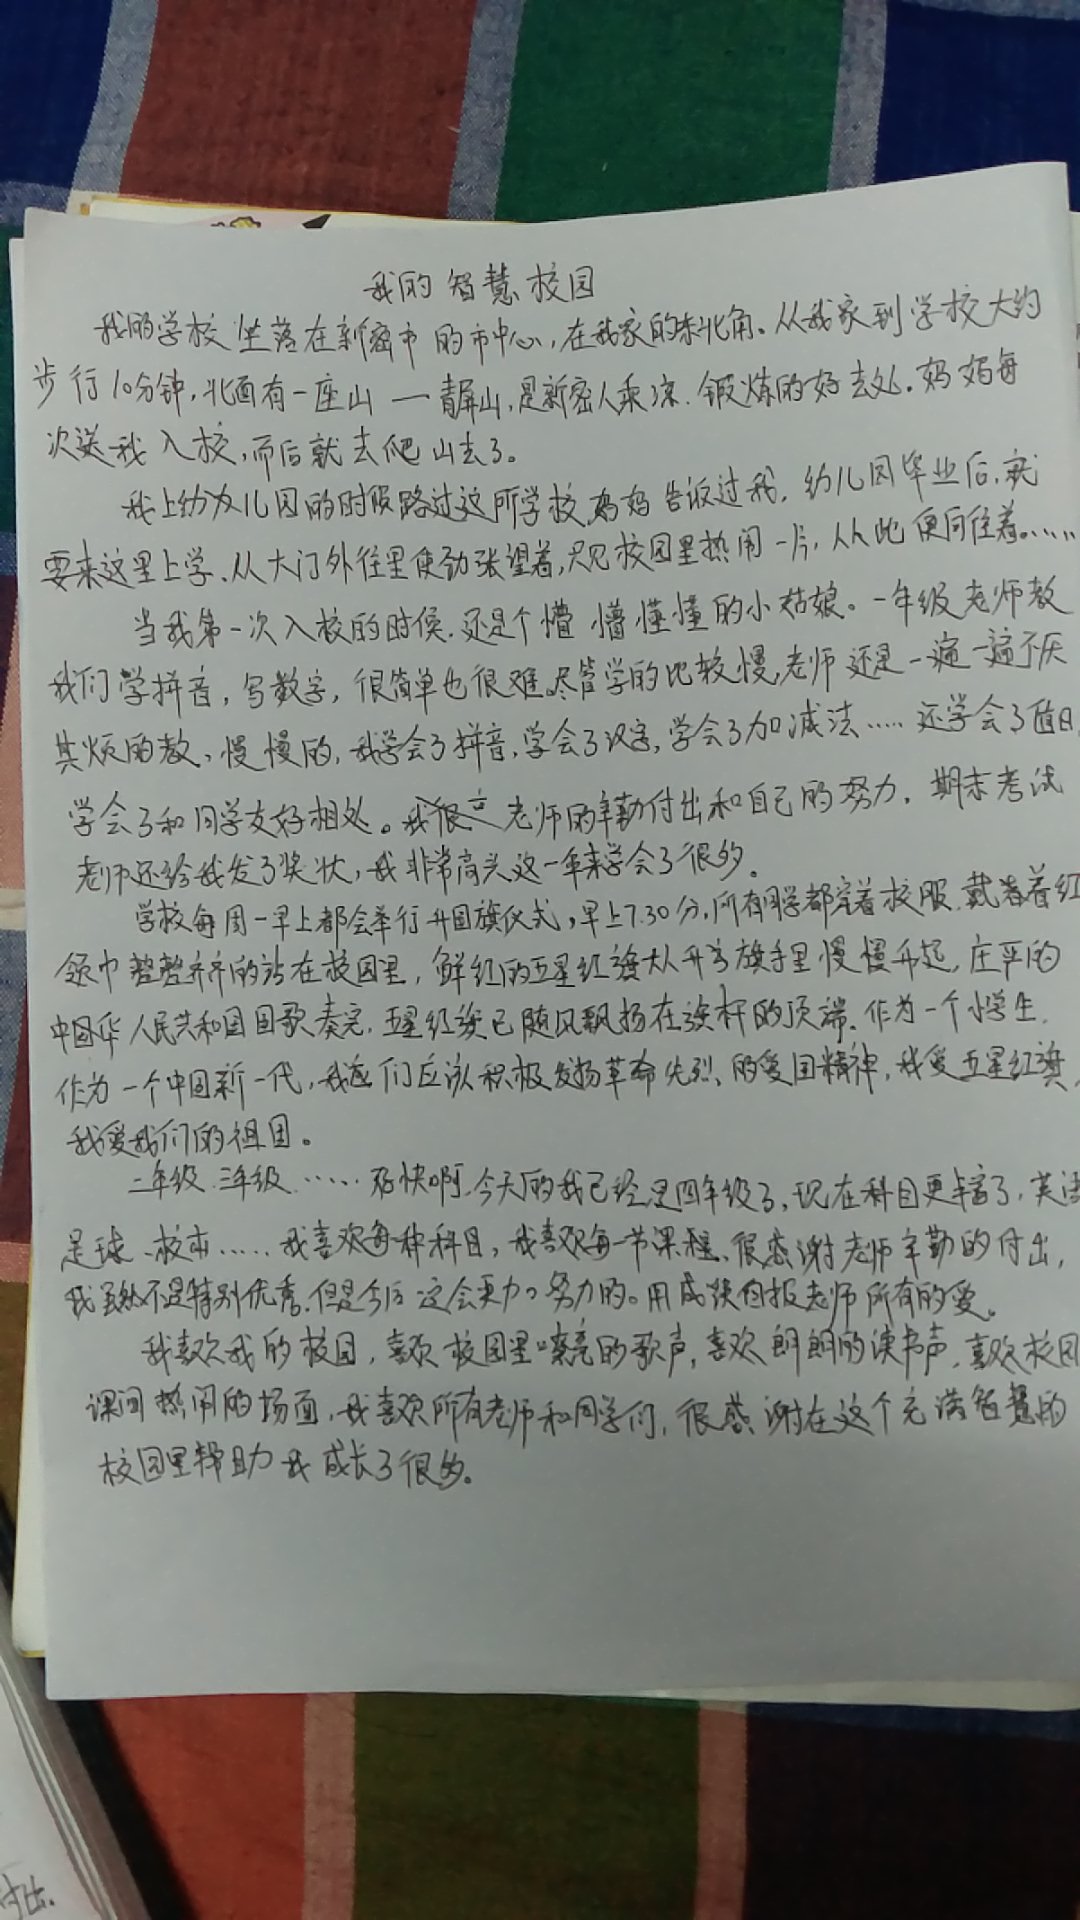 我的智慧校园
我的学校坐落在新密市的市中心,在我家的东北角。从我家到学校大约
步行10分钟,北面有一座山一青屏山,是新密人乘凉.锻炼的好去处.妈妈每
次送我入校,而后就去爬山去了。
我上幼儿园的时候路过这所学校,妈妈告诉过我,幼儿园毕业后,就
要来这里上学.从大门外往里使劲张望着,只见校园里热闹一片,从此便向往着……
当我第一次入校的时候.还是个懵懵懂懂的小姑娘。一年级老师教
我们学拼音,写数字,很简单也很难。尽管学的比较慢,老师还是一遍一遍不厌
其烦的教,慢慢的,我学会了拼音,学会了汉字,学会了加减法……还学会了值日,
学会了和同学友好相处。老师的辛勤付出和自己的努力,期末考试
老师还给我发了奖状,我非常高兴这一年来学会了很多.
学校每周一早上都会举行升国旗仪式,早上7.30分,所有同学都穿着校服.戴着红
领巾整整齐齐的站在校园里,鲜红的五星红旗从升旗手里慢慢升起,庄严的
中华人民共和国国歌奏完,五星红旗已随风飘扬在旗杆的顶端.作为一个小学生.
作为一个中国新一代,我们应该积极发扬革命先烈的爱国精神,我爱五星红旗,
我爱我们的祖国。
二年级.三年级……好快啊,今天的我已经是四年级了,现在科目更丰富了,英语
足球、校本……我喜欢每一种科目,我喜欢每一节课程.很感谢老师辛勤的付出,
我虽然不是特别优秀,但是今后一定会更加努力的。用成绩回报老师所有的爱。
我喜欢我的校园,喜欢校园里嘹亮的歌声,喜欢朗朗的读书声,喜欢校园
课间热闹的场面,我喜欢所有老师和同学们,很感谢在这个充满智慧的
校园里帮助我成长了很多。
付出.